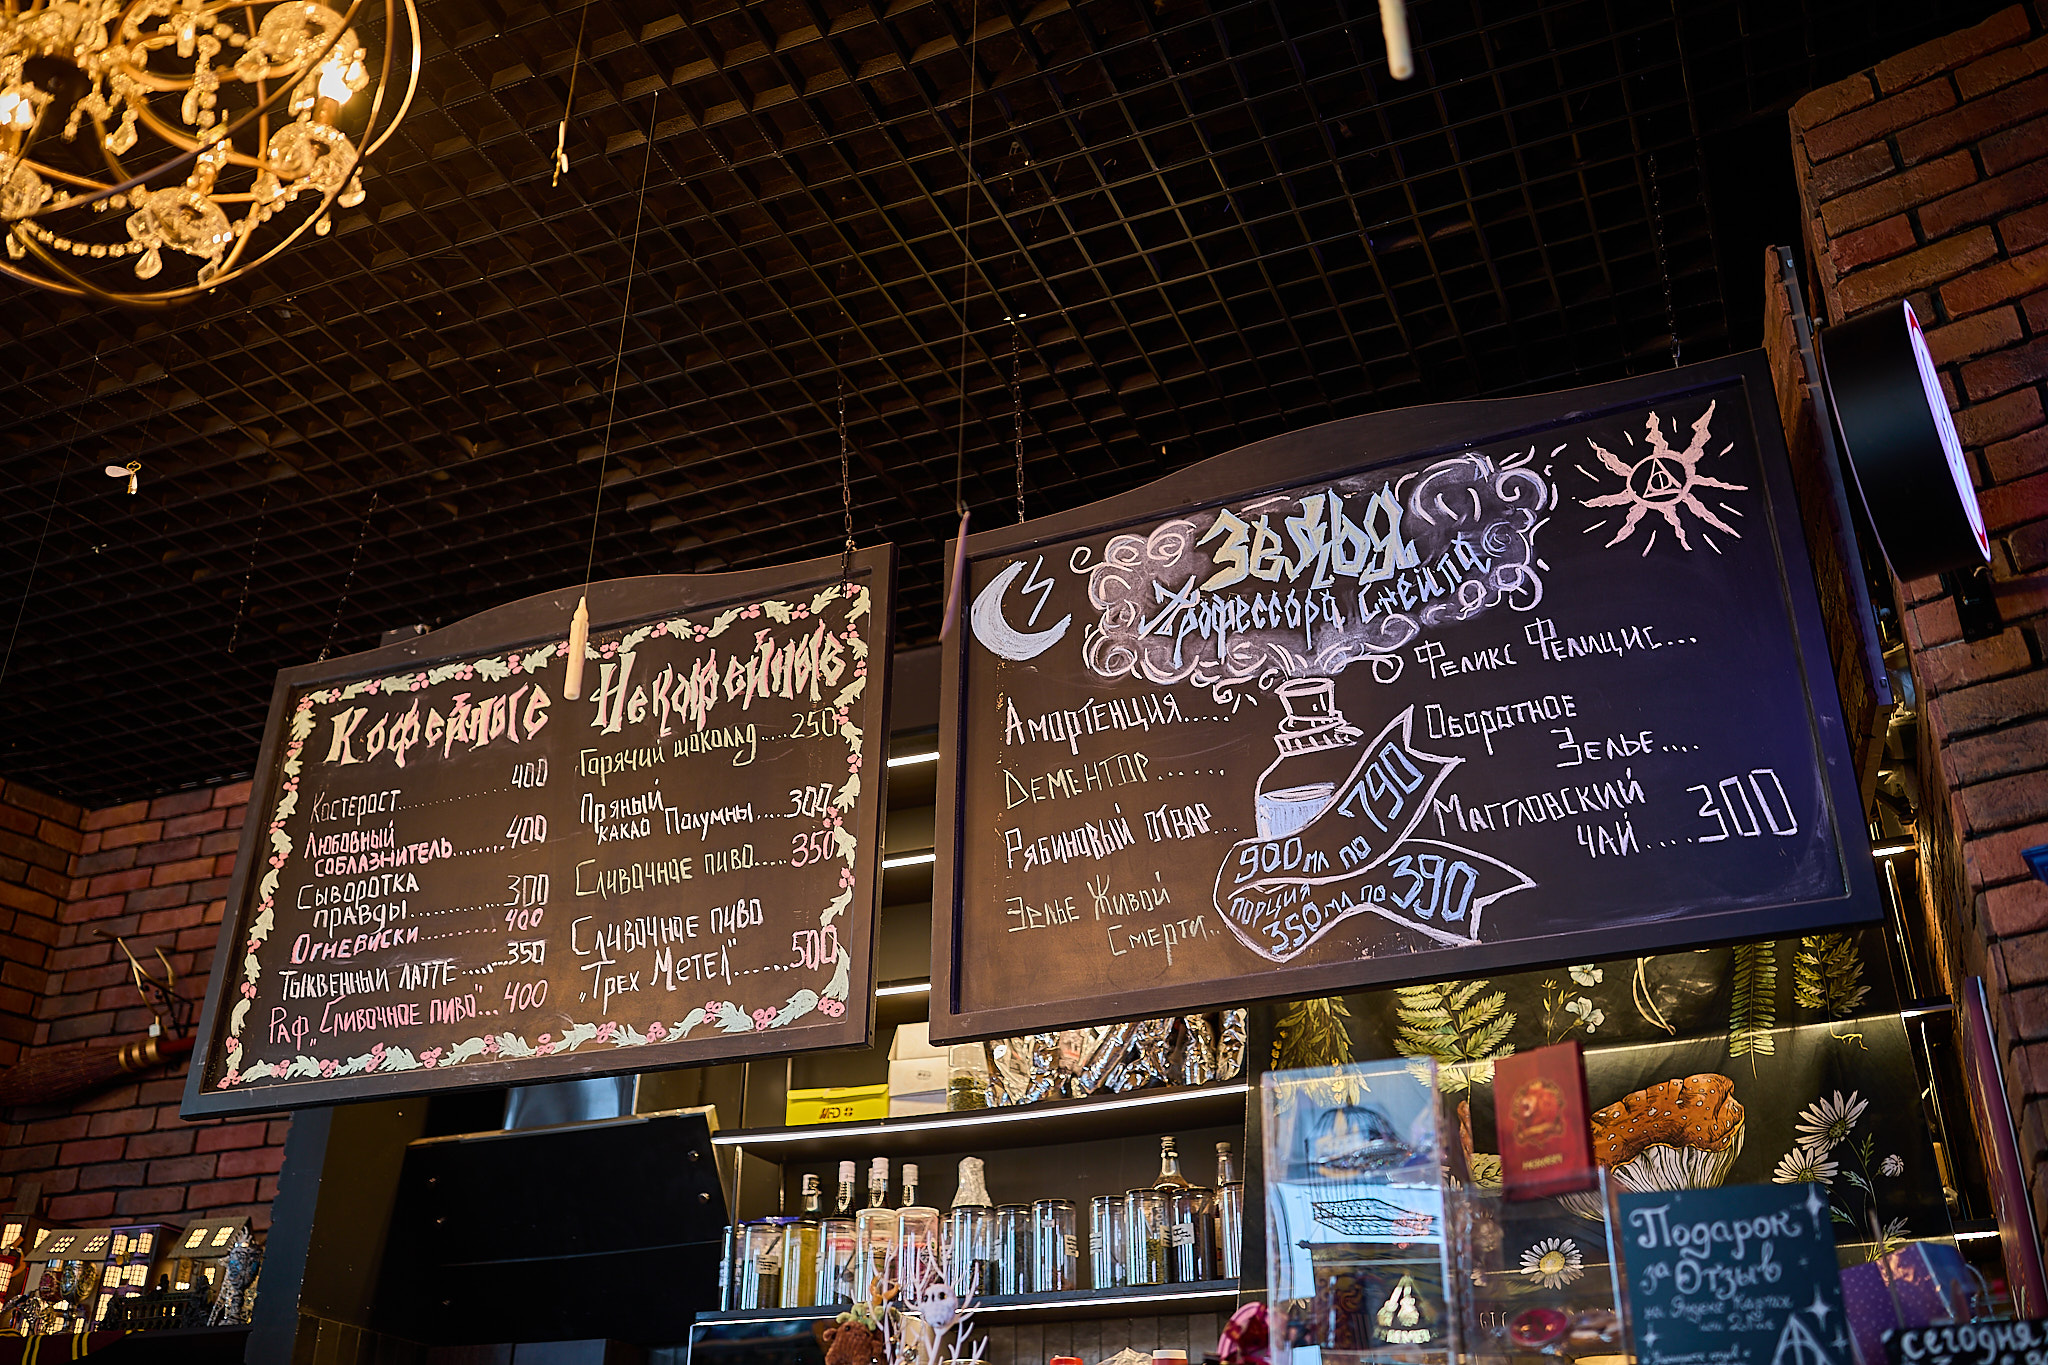 Кофейные
Костерост............ 400
Любовный
соблазнитель....... 400
Сыворотка
правды............ 300
Огневиски.......... 400
Тыквенный латте...... 350
Раф „Сливочное пиво"... 400
Некофейные
Горячий шоколад.... 250
Пряный
какао Полумны.... 300
Сливочное пиво..... 350
Сливочное пиво
„Трех Метел"...... 500
Зелья
Профессора Снейпа
Амортенция.....
Дементор......
Рябиновый отвар...
Зелье Живой
Смерти..
Феликс Фелицис...
Оборотное
Зелье....
Маггловский
чай.... 300
900 мл по 790
порция
350 мл по 390
Подарок
за Отзыв
на Яндекс Картах
или 2Гис
сегодня